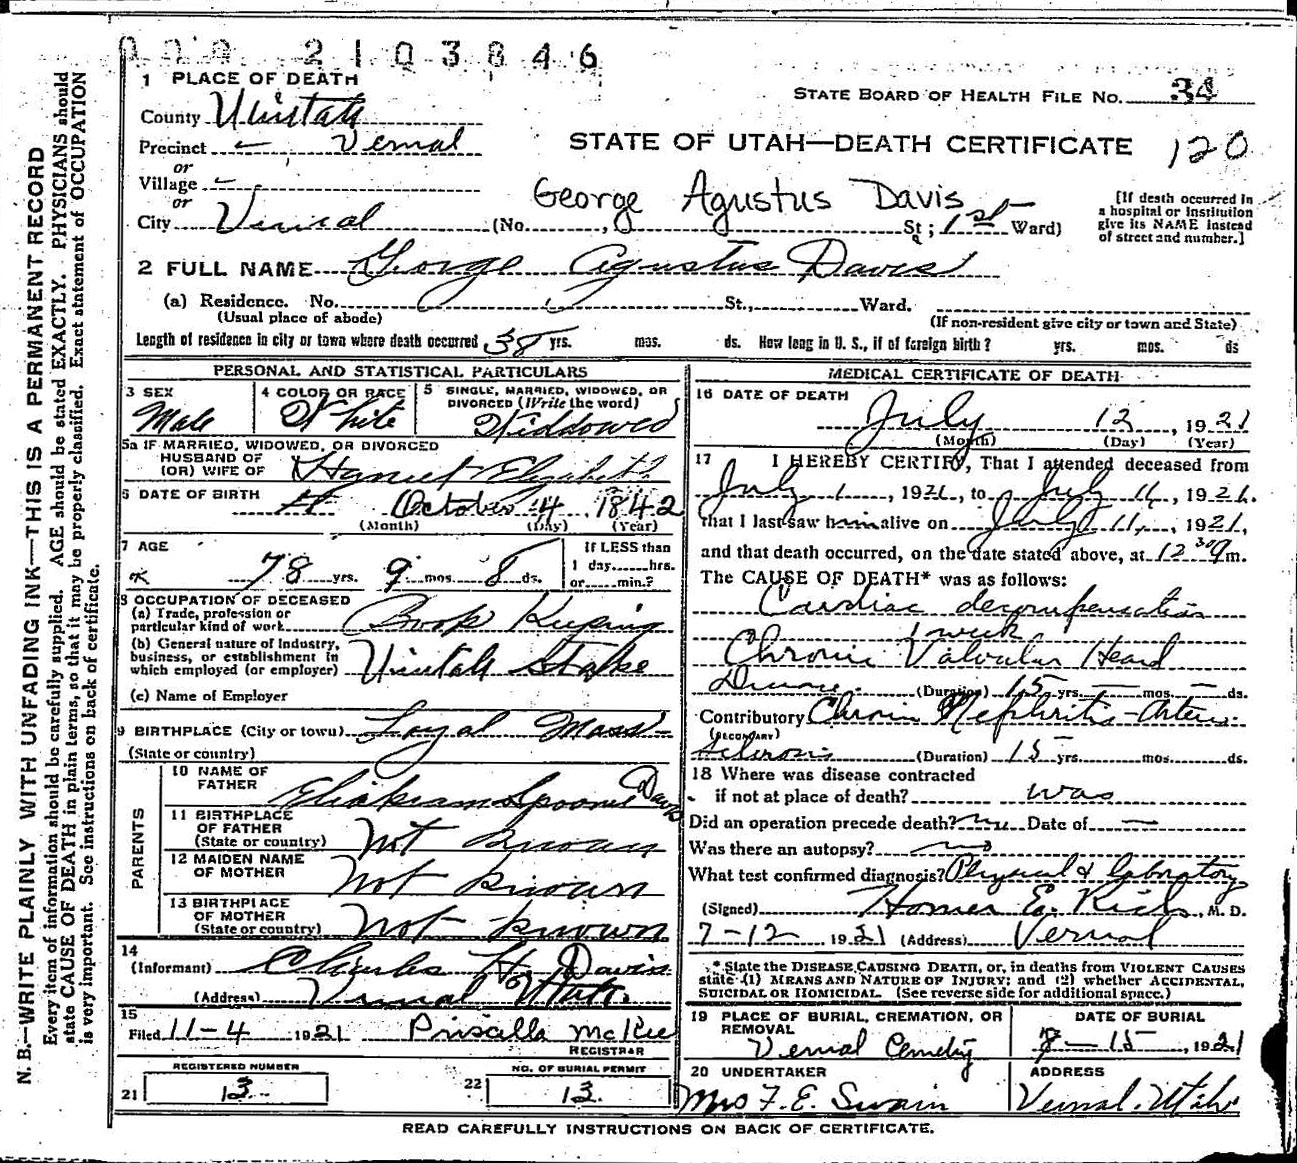 2103846
1 PLACE OF DEATH
STATE BOARD OF HEALTH FILE NO. 34
County Uintah
Precinct Vernal
STATE OF UTAH—DEATH CERTIFICATE 120
or
Village
or
George Agustus Davis
City Vernal (No. St; 1st Ward)
[If death occurred in
a hospital or institution
give its NAME instead
of street and number.]
2 FULL NAME George Agustus Davis
(a) Residence. No. St., Ward.
(Usual place of abode) (If non-resident give city or town and State)
Length of residence in city or town where death occurred 38 yrs. mos. ds. How long in U. S., if of foreign birth? yrs. mos. ds
PERSONAL AND STATISTICAL PARTICULARS
3 SEX
Male
4 COLOR OR RACE
White
5 SINGLE, MARRIED, WIDOWED, OR
DIVORCED (Write the word)
Widdowed
5a IF MARRIED, WIDOWED, OR DIVORCED
HUSBAND OF
(OR) WIFE OF Harriet Elizabeth
6 DATE OF BIRTH October 4 1842
(Month) (Day) (Year)
7 AGE
78 yrs. 9 mos. 8 ds.
If LESS than
1 day......hrs.
or......min.?
8 OCCUPATION OF DECEASED
(a) Trade, profession or
particular kind of work Book Keeping
(b) General nature of industry,
business, or establishment in
which employed (or employer) Uintah Stake
(c) Name of Employer
9 BIRTHPLACE (City or town) Loyal Mass
(State or country)
PARENTS
10 NAME OF
FATHER Eliakeam Spooner Davis
11 BIRTHPLACE
OF FATHER
(State or country) Not known
12 MAIDEN NAME
OF MOTHER Not known
13 BIRTHPLACE
OF MOTHER
(State or country) Not known
14
(Informant) Charles H. Davis
(Address) Vernal Utah.
15
Filed 11-4 1921 Priscilla McKee
REGISTRAR
REGISTERED NUMBER
21 13
NO. OF BURIAL PERMIT
22 13.
MEDICAL CERTIFICATE OF DEATH
16 DATE OF DEATH
July 12, 1921
(Month) (Day) (Year)
17 I HEREBY CERTIFY, That I attended deceased from
July 1, 1921, to July 11, 1921.
that I last saw him alive on July 11, 1921,
and that death occurred, on the date stated above, at 12 30 a m.
The CAUSE OF DEATH* was as follows:
Cardiac decompensation
1 week
Chronic Valvular Heard
Disease. (Duration) 15 yrs. — mos. — ds.
Contributory Chronic Nephritis - Arterio
(SECONDARY)
Sclerosis (Duration) 15 yrs. mos. ds.
18 Where was disease contracted
if not at place of death? was
Did an operation precede death? no Date of —
Was there an autopsy? no
What test confirmed diagnosis? Physical & laboratory
(Signed) Homer E. Rich, M. D.
7-12 1921 (Address) Vernal
* State the DISEASE CAUSING DEATH, or, in deaths from VIOLENT CAUSES
state (1) MEANS AND NATURE OF INJURY; and (2) whether ACCIDENTAL,
SUICIDAL OR HOMICIDAL. (See reverse side for additional space.)
19 PLACE OF BURIAL, CREMATION, OR
REMOVAL
Vernal Cemetery
DATE OF BURIAL
7-15, 1921
20 UNDERTAKER
Mrs F. E. Swain
ADDRESS
Vernal. Utah
READ CAREFULLY INSTRUCTIONS ON BACK OF CERTIFICATE.
N. B.—WRITE PLAINLY WITH UNFADING INK—THIS IS A PERMANENT RECORD
Every item of information should be carefully supplied. AGE should be stated EXACTLY. PHYSICIANS should
state CAUSE OF DEATH in plain terms, so that it may be properly classified. Exact statement of OCCUPATION
is very important. See instructions on back of certificate.